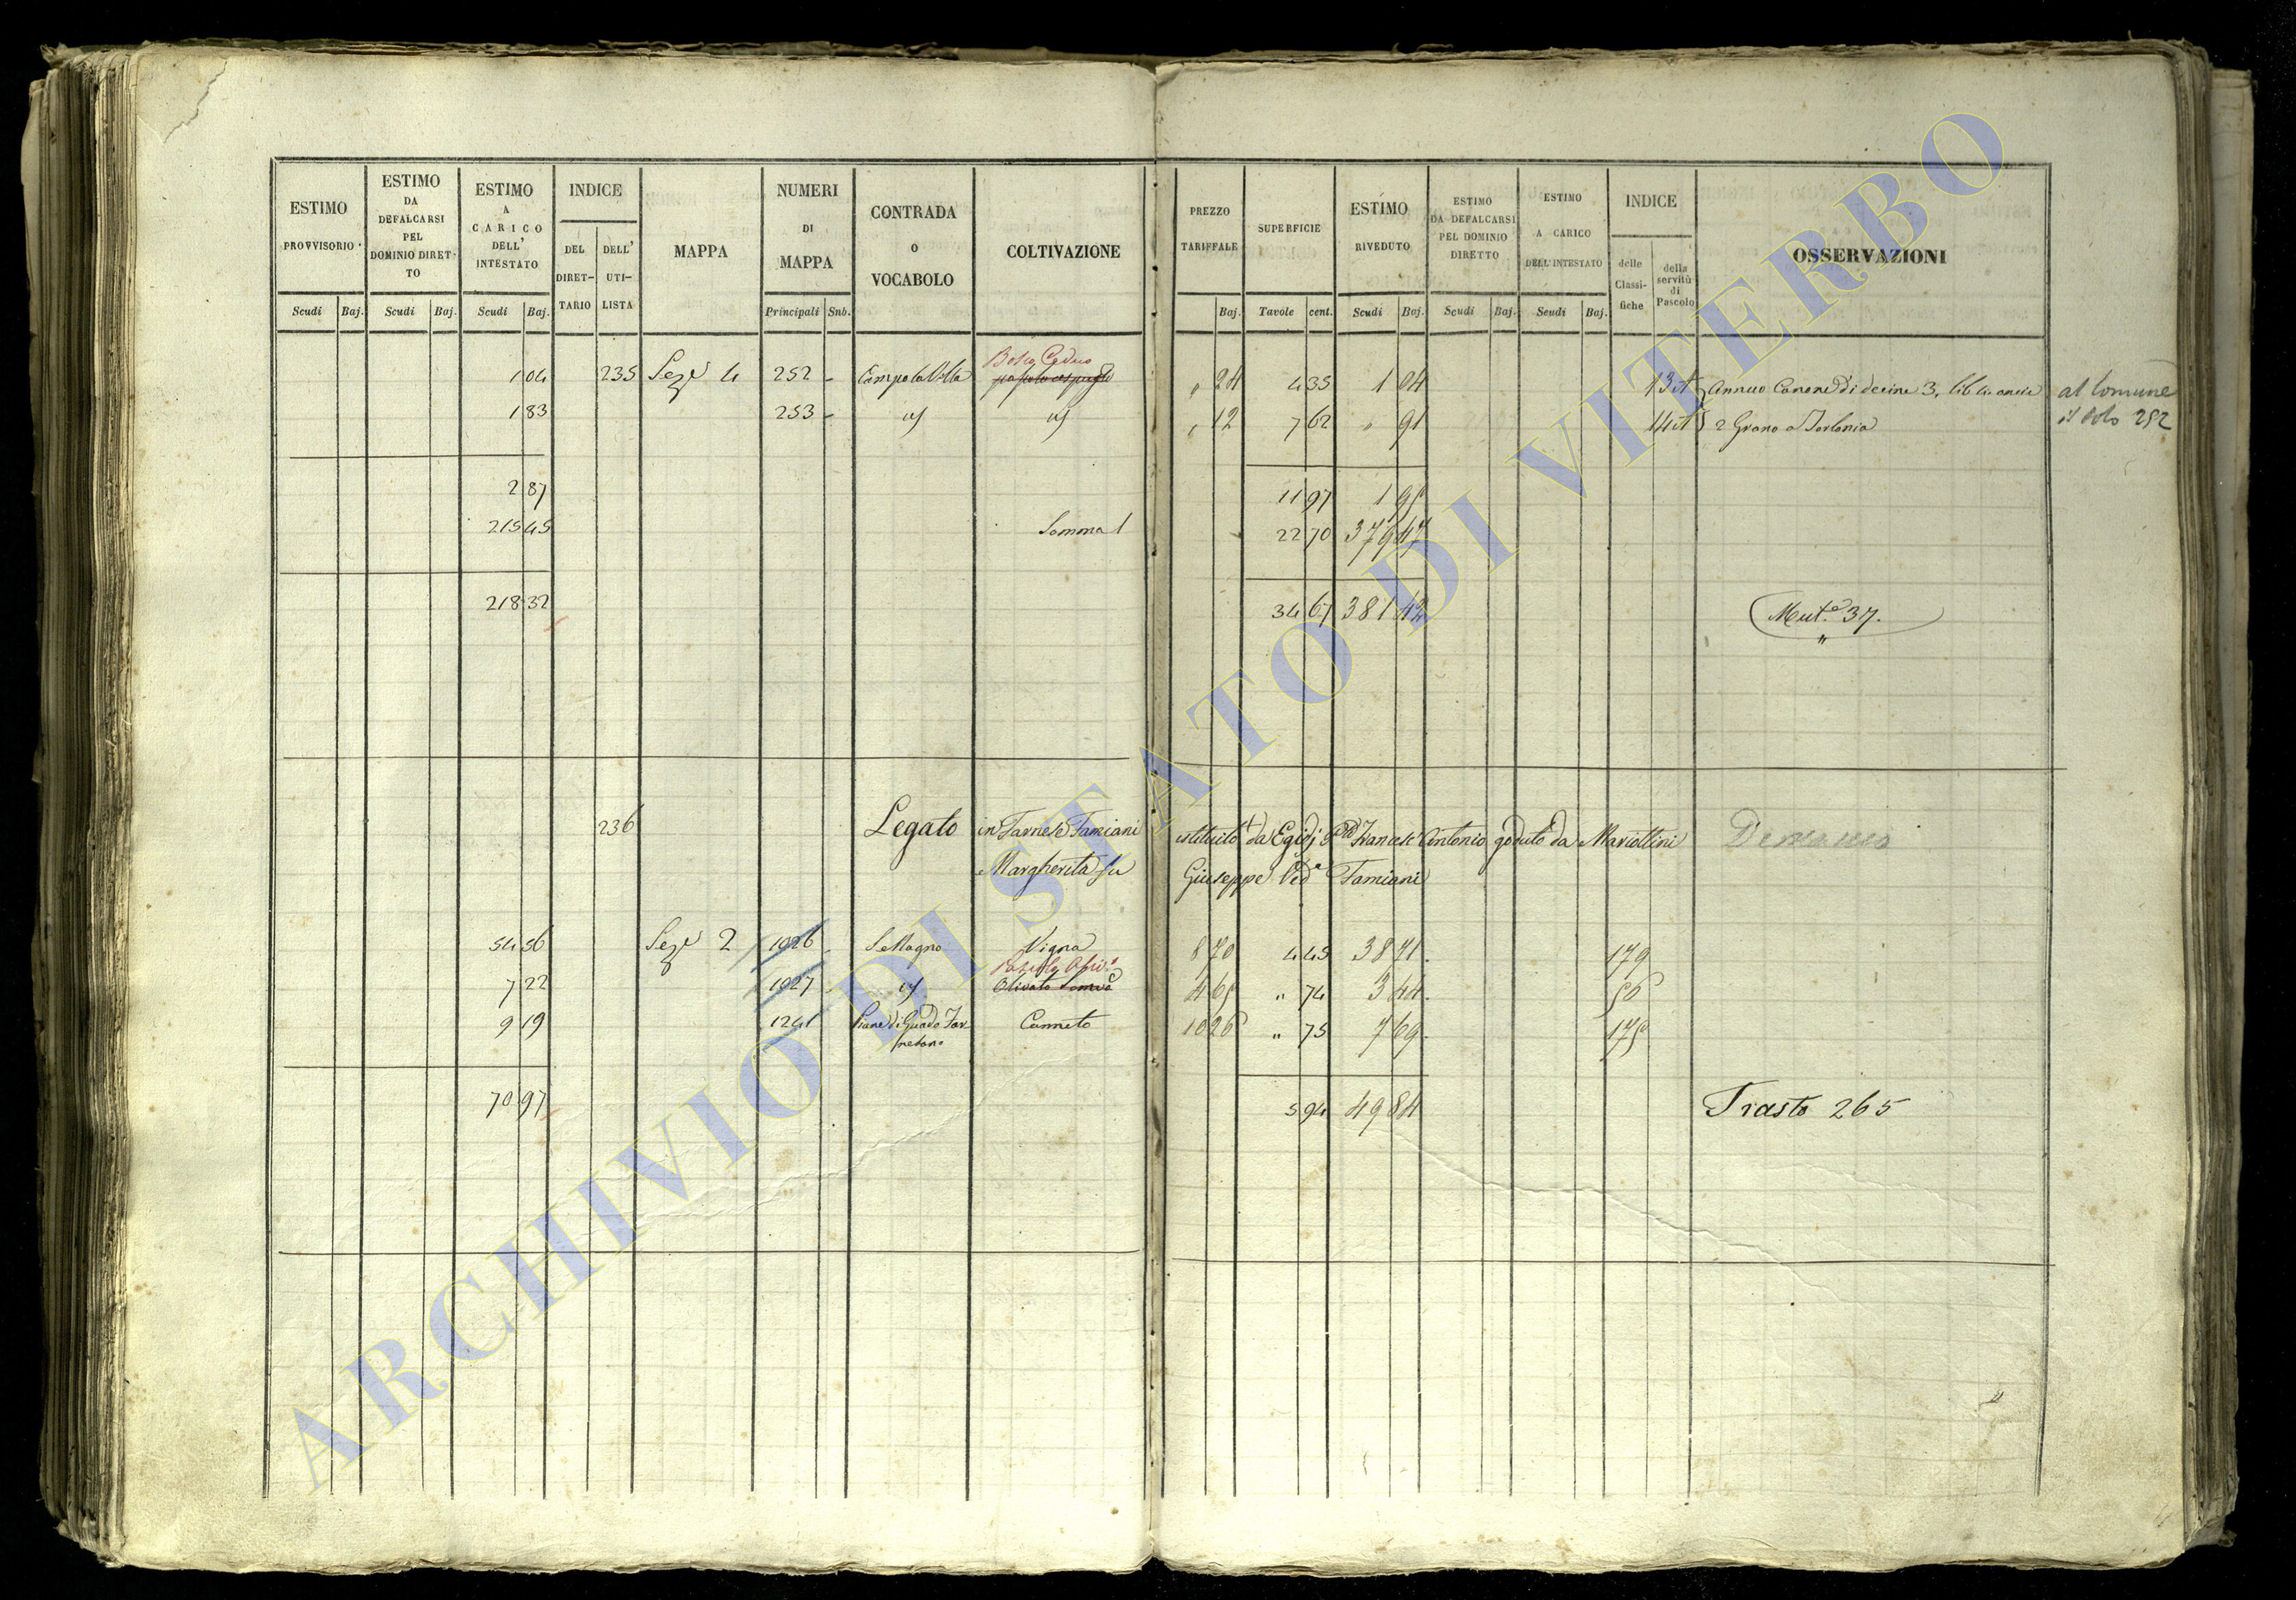 ESTIMO PROVVISORIO
Scudi Baj.
ESTIMO DA DEFALCARSI PEL DOMINIO DIRET- TO
Scudi Baj.
ESTIMO A CARICO DELL' INTESTATO
Scudi Baj.
INDICE
DEL DIRET- TARIO
DELL' UTI- LISTA
MAPPA
NUMERI DI MAPPA
Principali Sub.
CONTRADA O VOCABOLO
COLTIVAZIONE
PREZZO TARIFFALE
Baj.
SUPERFICIE
Tavole cent.
ESTIMO RIVEDUTO
Scudi Baj.
ESTIMO DA DEFALCARSI PEL DOMINIO DIRETTO
Scudi Baj.
ESTIMO A CARICO DELL'INTESTATO
Scudi Baj.
INDICE
delle Classi- fiche
della servitù di Pascolo
OSSERVAZIONI
Bosco Ceduo
1 04 235 Sezᵉ 4 252 - Campo la Villa pascolo cespugᵗᵒ " 24 4 35 1 04 13 A Annuo Canone di decine 3, lib 4. oncie al Comune
1 83 253 - id id " 12 7 62 " 91 14 A 2 Grano a Torlonia il solo 252
2 87 11 97 1 95
215 45 Somma 1 22 70 379 47
218 32 34 67 381 42 Mutᵉ 37.
236 Legato in Farnese Tamiani istituito da Egidj Francesc Antonio goduto da Mariottini Demanio
Margherita fu Giuseppe Vedᵃ Tamiani
54 56 Sezᵉ 2 1026 - Vigna 8 70 4 45 38 71 179
Pascolo Oliv.ᵒ
7 22 1027 - id Olivato 4 65 " 74 3 44 56
9 19 1241 Piane di Guado Far Canneto 10 26 " 75 7 69 175
nesano
70 97 5 94 49 84 Trasto 265
ARCHIVIO DI STATO DI VITERBO